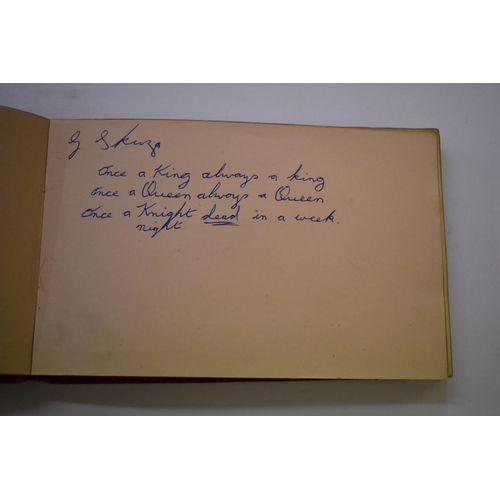 G Skurza
Once a King always a king
once a Queen always a Queen
Once a Knight dead in a week.
night